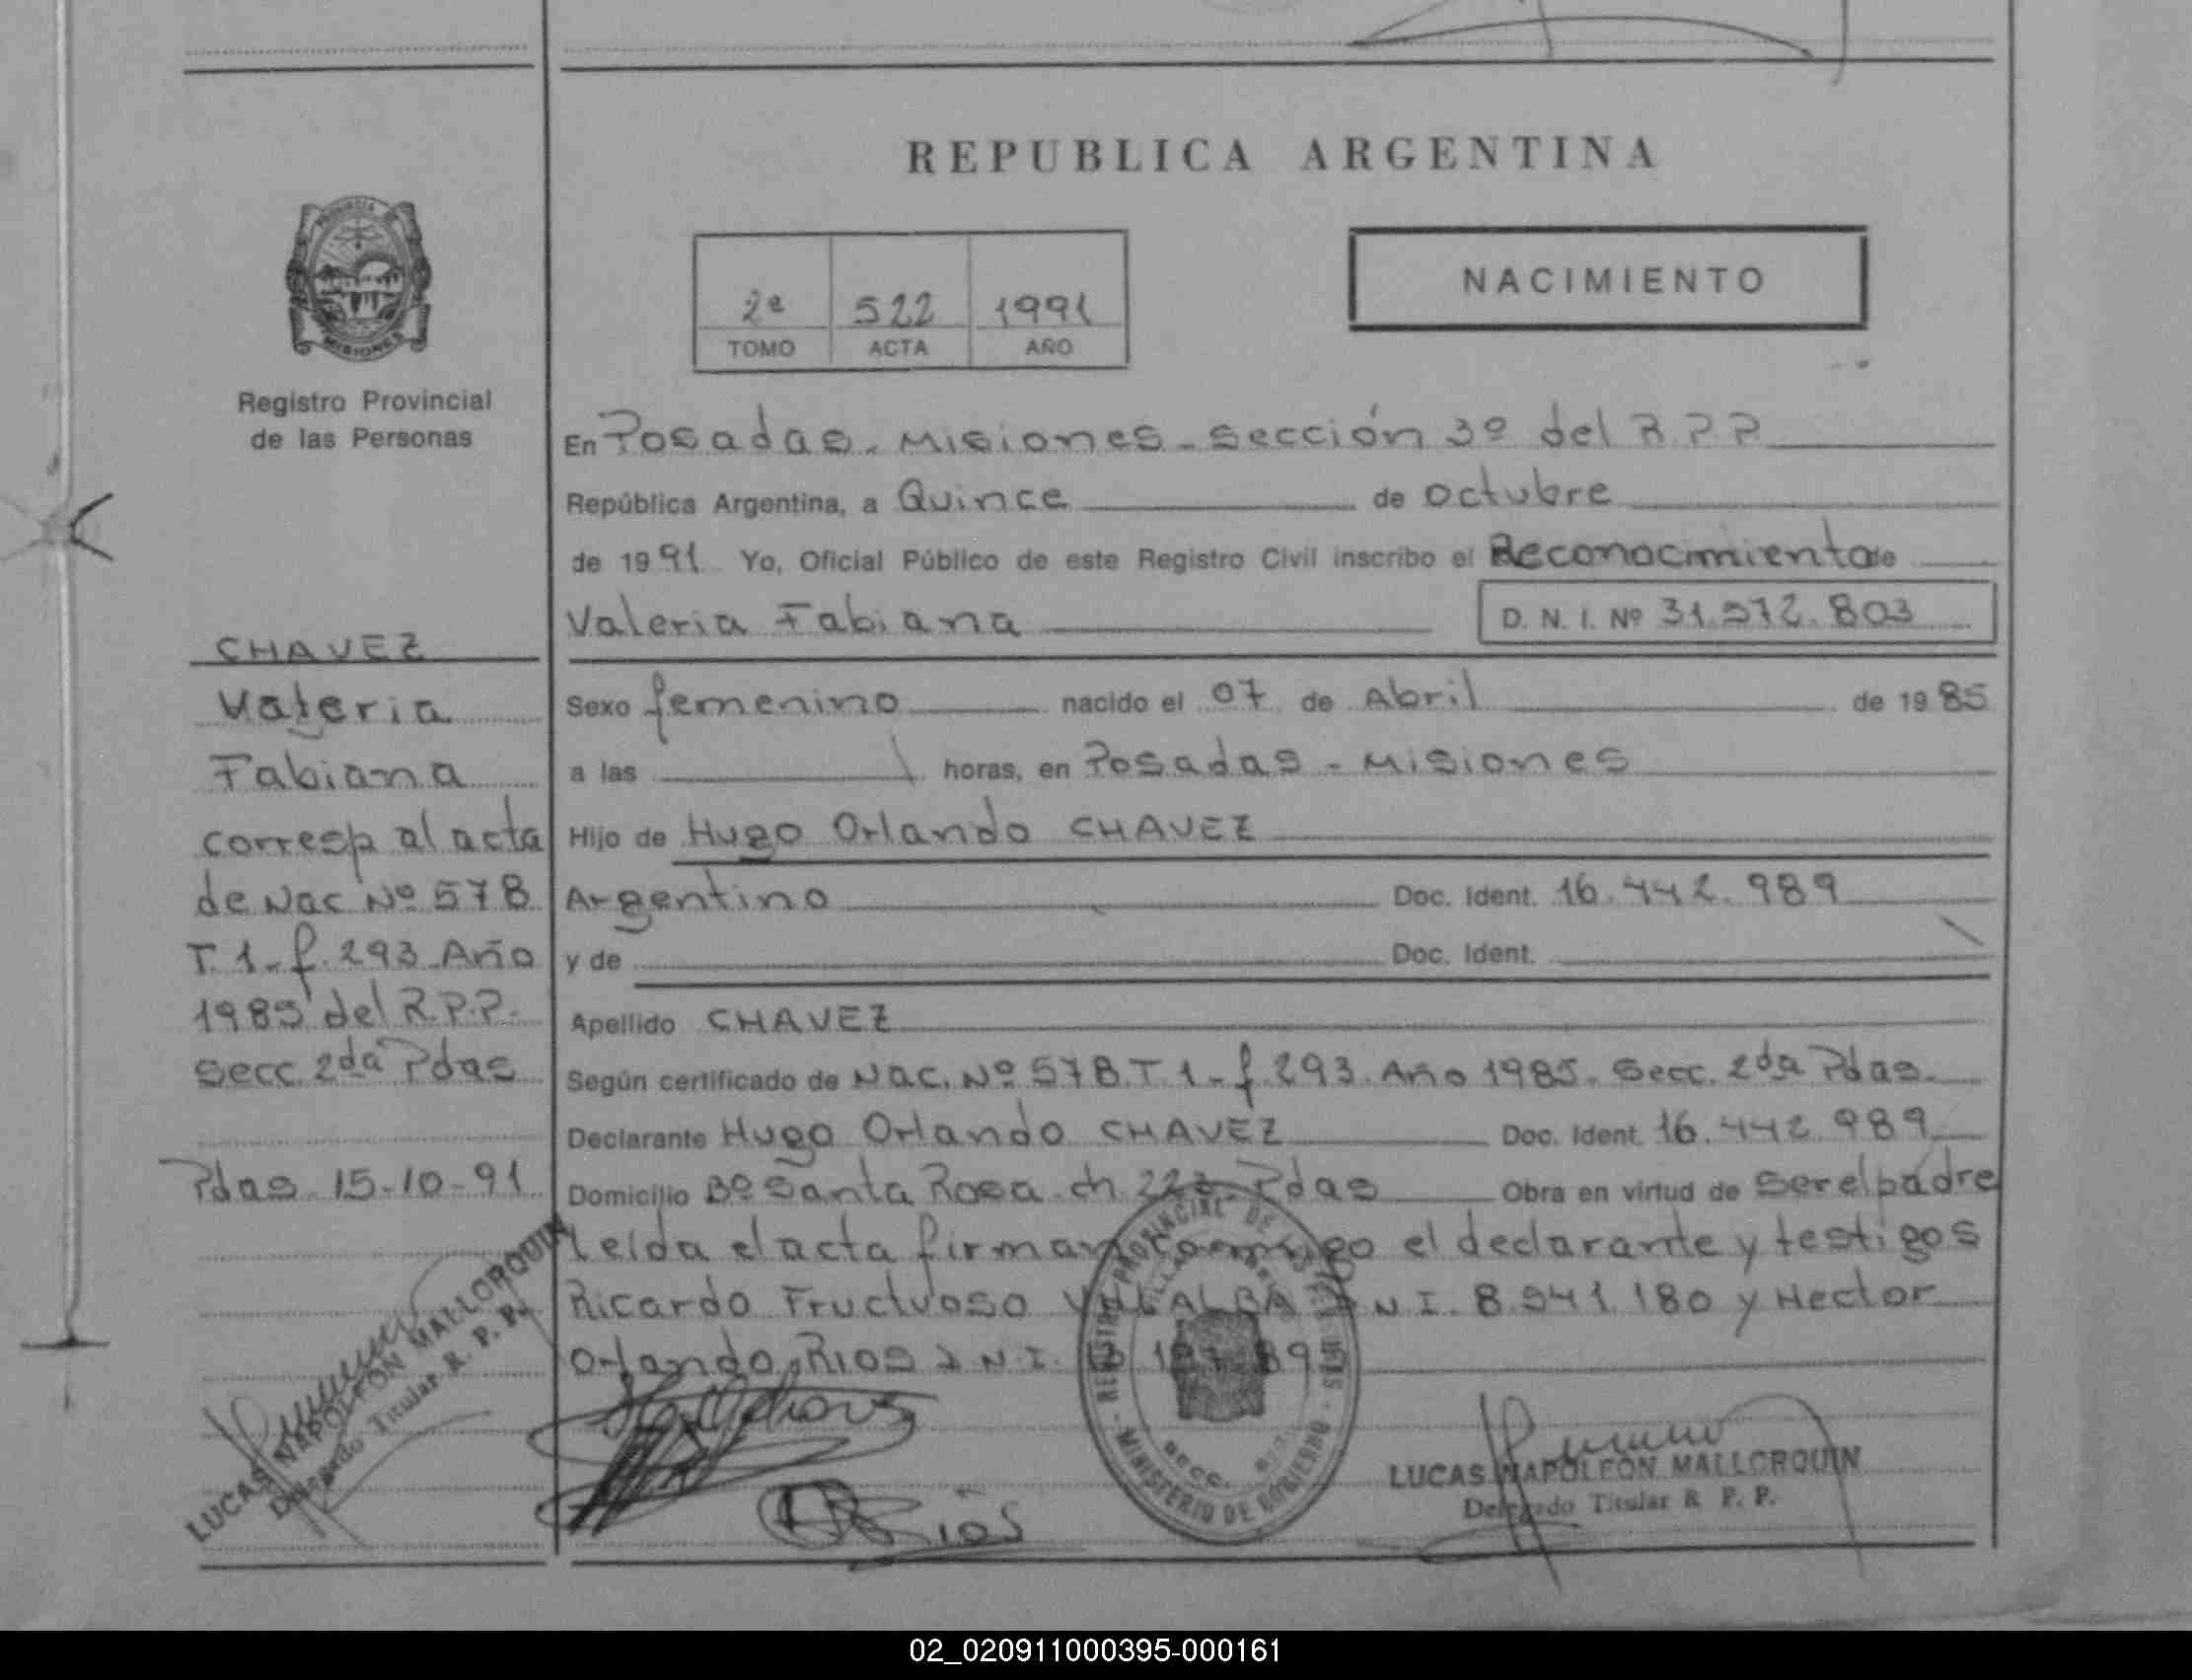 REPUBLICA ARGENTINA
PROVINCIA DE
MISIONES
Registro Provincial
de las Personas
2ª 522 1991
TOMO ACTA AÑO
NACIMIENTO
En Posadas - Misiones - Sección 3º del R.P.P
República Argentina, a Quince de octubre
de 1991 Yo, Oficial Público de este Registro Civil inscribo el Reconocimiento de
Valeria Fabiana D. N. I. Nº 31.572.803
Sexo femenino nacido el 07 de Abril de 1985
a las horas, en Posadas - Misiones
Hijo de Hugo Orlando CHAVEZ
Argentino Doc. Ident. 16.442.989
y de Doc. Ident.
Apellido CHAVEZ
Según certificado de Nac. Nº 578 T 1 - f 293 Año 1985. Secc. 2da Pdas.
Declarante Hugo Orlando CHAVEZ Doc. Ident. 16.442.989
Domicilio Bº Santa Rosa ch Pdas Obra en virtud de ser el padre
Leida el acta firman conmigo el declarante y testigos
Ricardo Fructuoso VILLALBA D N I. 8.541.180 y Hector
Orlando RIOS D N.I.
CHAVEZ
Valeria
Fabiana
corresp al acta
de Nac Nº 578
T. 1 - f. 293 Año
1985 del R.P.P.
Secc. 2da Pdas
Pdas 15-10-91
LUCAS NAPOLEON MALLORQUIN
Delegado Titular R. P. P.
Rios
REGISTRO PROVINCIAL DE LAS PERSONAS
MINISTERIO DE GOBIERNO
SECC.
LUCAS NAPOLEON MALLORQUIN
Delegado Titular R. P. P.
02_020911000395-000161